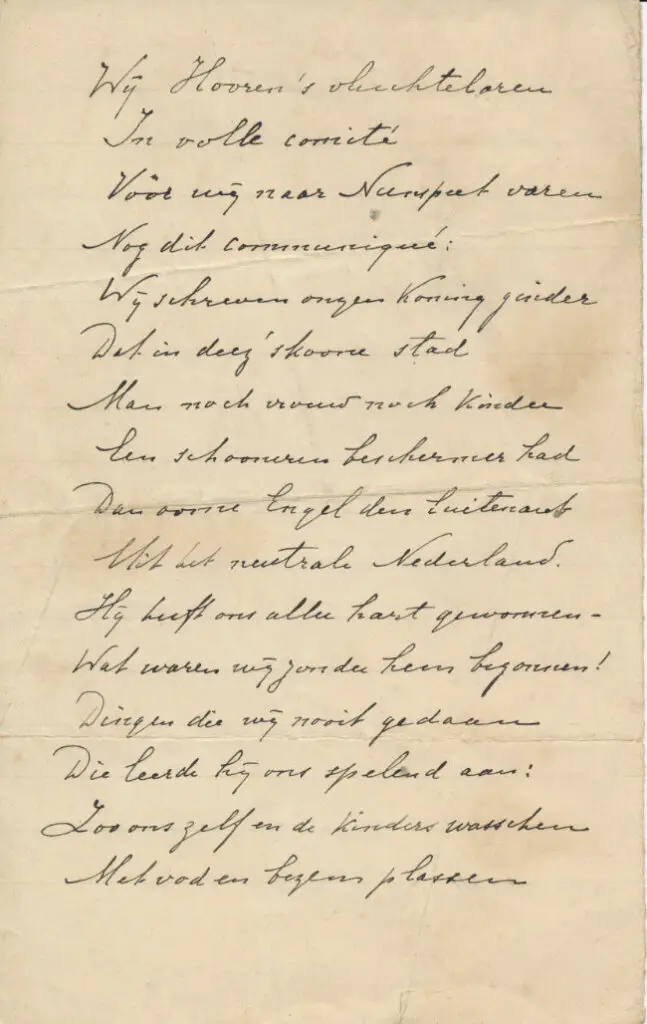 Wij Hooren's vluchtelaren
In volle comité
Vóór wij naar Nunspeet varen
Nog dit communiqué:
Wij schreven onzen Koning ginder
Dat in deez' skoone stad
Man noch vrouw noch kinder
Een schooneren beschermer had
Dan oome Engel den luitenant
Uit het neutrale Nederland.
Hij heeft ons aller hart gewonnen –
Wat waren wij zonder hem begonnen!
Dingen die wij nooit gedaan
Die leerde hij ons spelend aan:
Zoo ons zelf en de kinders wasschen
Met vod en bezem plassen